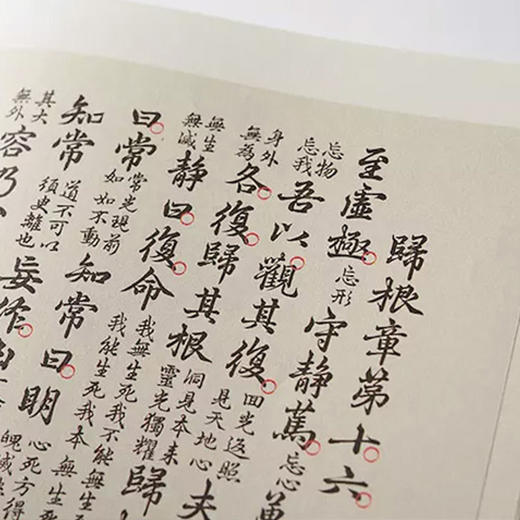 歸根章第十六
至虛極忘形守靜篤忘心萬
忘物忘我吾以觀其復回光返照見天地心夫
身外無為各復歸其根洞見本來靈光獨耀歸
無生無滅靜曰復命我無生死我不能生死我能生死我本無生死
曰常常光現前如如不動知常曰明心死方得魄滅
知常道不可以須臾離也妄作凶
其大無外容乃